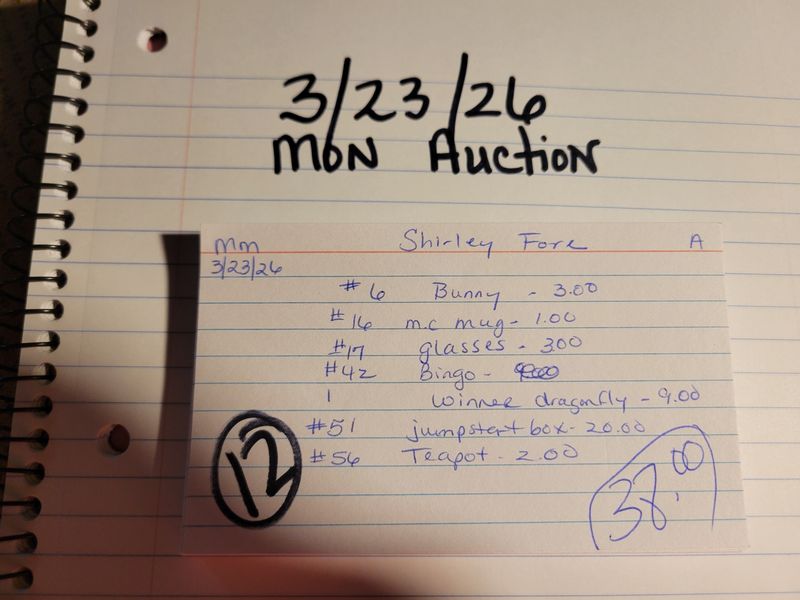 3/23/26
MON Auction
mm Shirley Fore A
3/23/26
#6 Bunny - 3.00
#16 m.c mug - 1.00
#17 glasses - 3.00
#42 Bingo -
1 winner dragonfly - 9.00
#51 jumpstart box - 20.00
#56 Teapot - 2.00
12
38.00